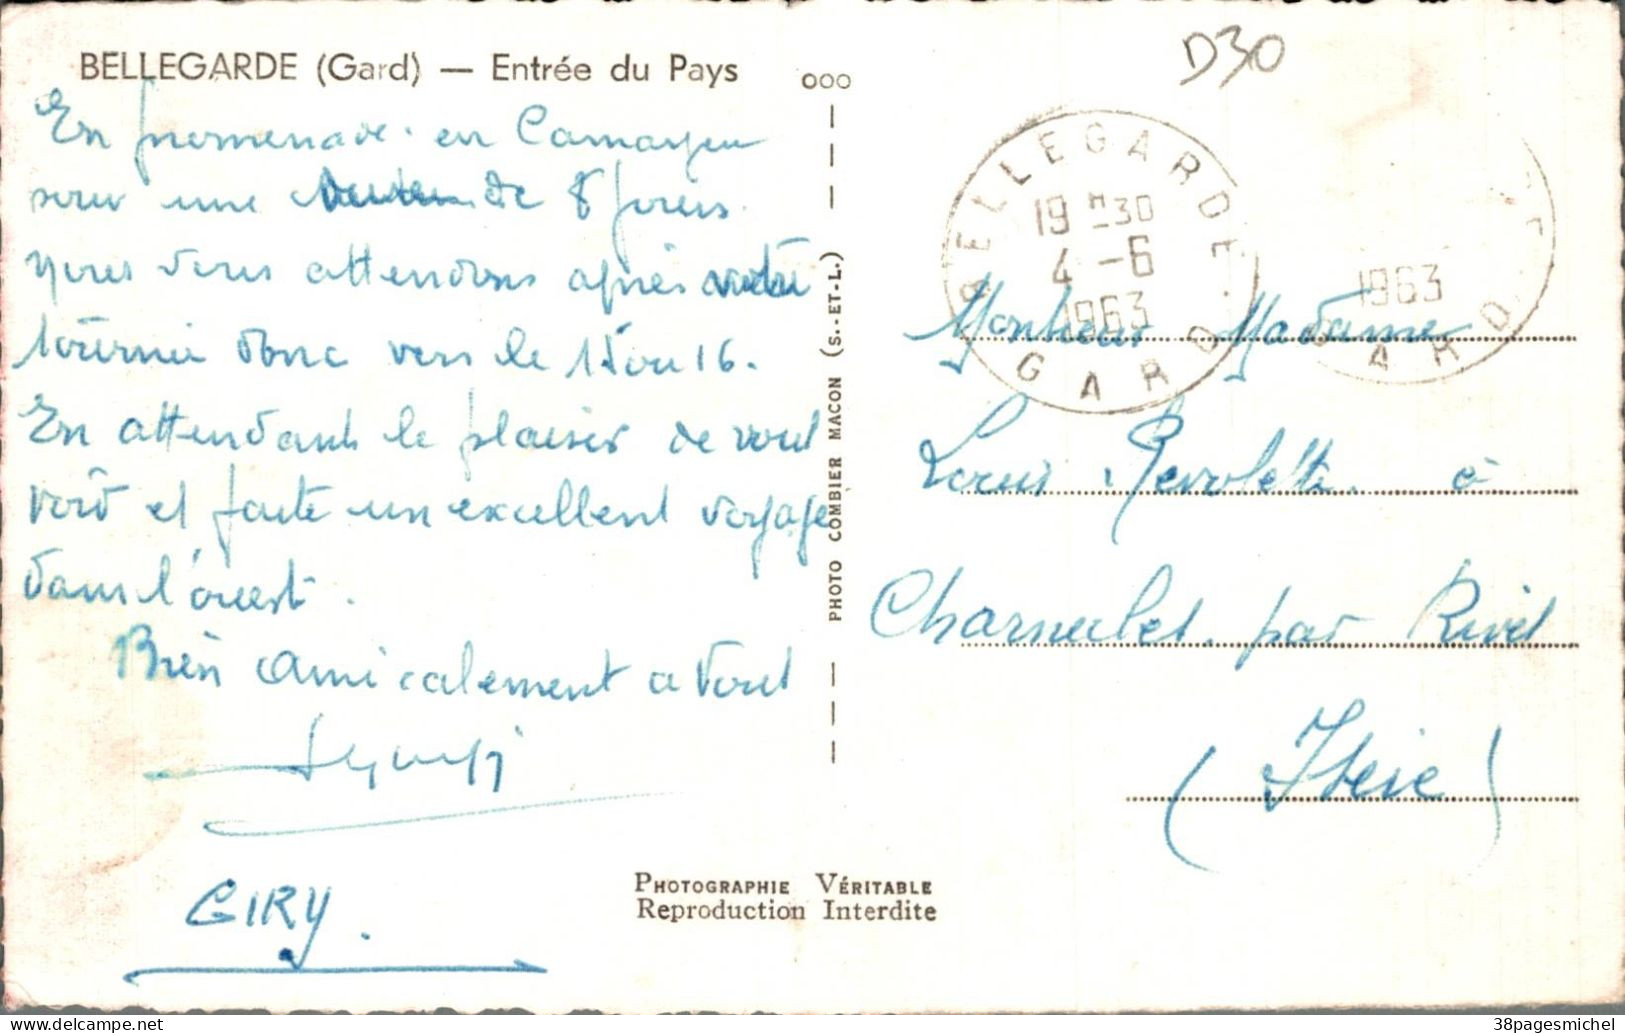 BELLEGARDE (Gard) — Entrée du Pays
ooo
D30
En promenade en Camargue
pour une de 8 jours
nous vous attendons après votre
tournée donc vers le 15 ou 16.
En attendant le plaisir de vous
voir et faite un excellent voyage
dans l'ouest.
Bien amicalement a vous
GIRY.
PHOTO COMBIER MACON (S.-ET-L.)
PHOTOGRAPHIE VÉRITABLE
Reproduction Interdite
BELLEGARDE
19 H 30
4 - 6
1963
GARD
1963
GARD
Monsieur Madame
Louis à
par Rives
(Isère)
38pagesmichel